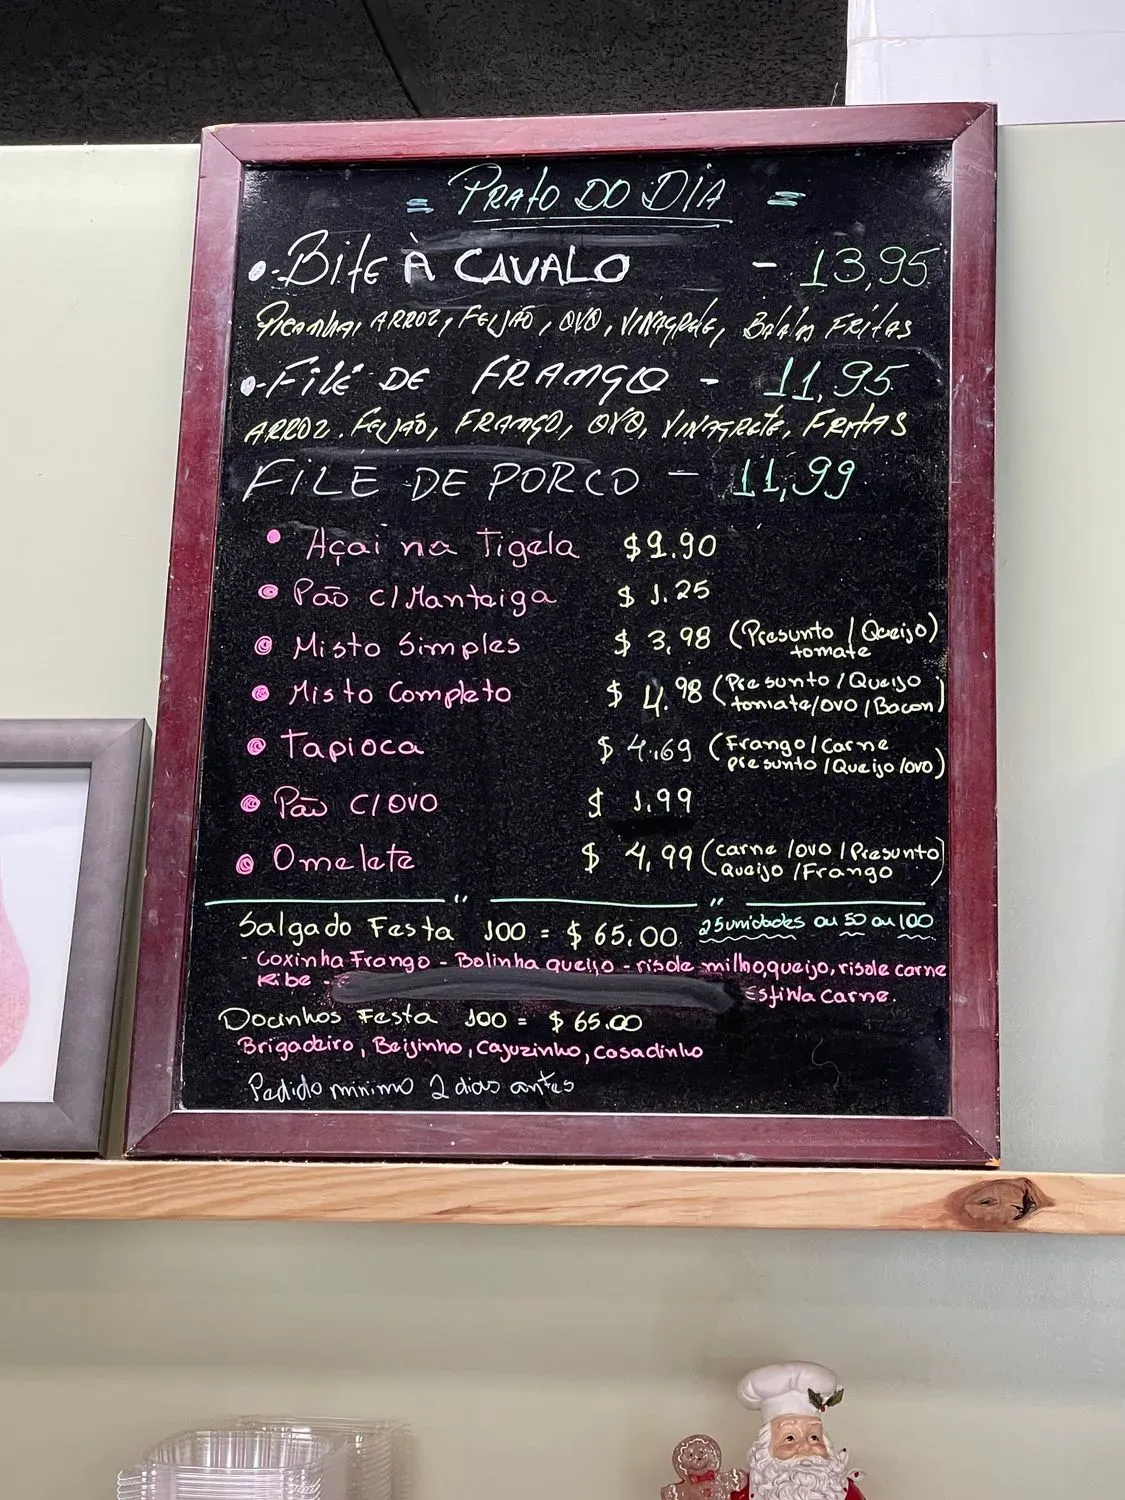 = PRATO DO DIA =
- Bife À CAVALO - 13,95
Picanha, ARROZ, FEIJÃO, OVO, VINAGRETE, Batatas FRITAS
- Filé DE FRANGO - 11,95
ARROZ. FEIJÃO, FRANGO, OVO, VINAGRETE, FRITAS
FILE DE PORCO - 11,99
• Açai na Tigela $9.90
• Pão c/Manteiga $1.25
• Misto Simples $3,98 (Presunto / Queijo)
tomate
• Misto Completo $4.98 (Presunto / Queijo
tomate/ovo / Bacon)
• Tapioca $4.69 (Frango / Carne
presunto / Queijo / ovo)
• Pão C/OVO $1.99
• Omelete $4,99 (carne / ovo / Presunto)
Queijo / Frango
Salgado Festa 100 = $65.00 25 unidades ou 50 ou 100
- Coxinha Frango - Bolinha queijo - risole milho, queijo, risole carne
Kibe - Esfiha Carne.
Docinhos Festa 100 = $65.00
Brigadeiro, Beijinho, Cajuzinho, casadinho
Pedido minimo 2 dias antes